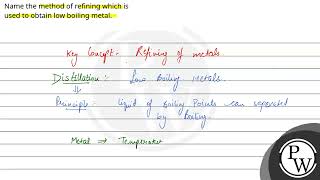 Name the method of refining which is
used to obtain low boiling metal.
Key Concept - Refining of metals.
Distillation :- Low Boiling metals.
Principle : liquid of boiling Points can separated
by Boiling.
Metal ⇒ Temperater
PW